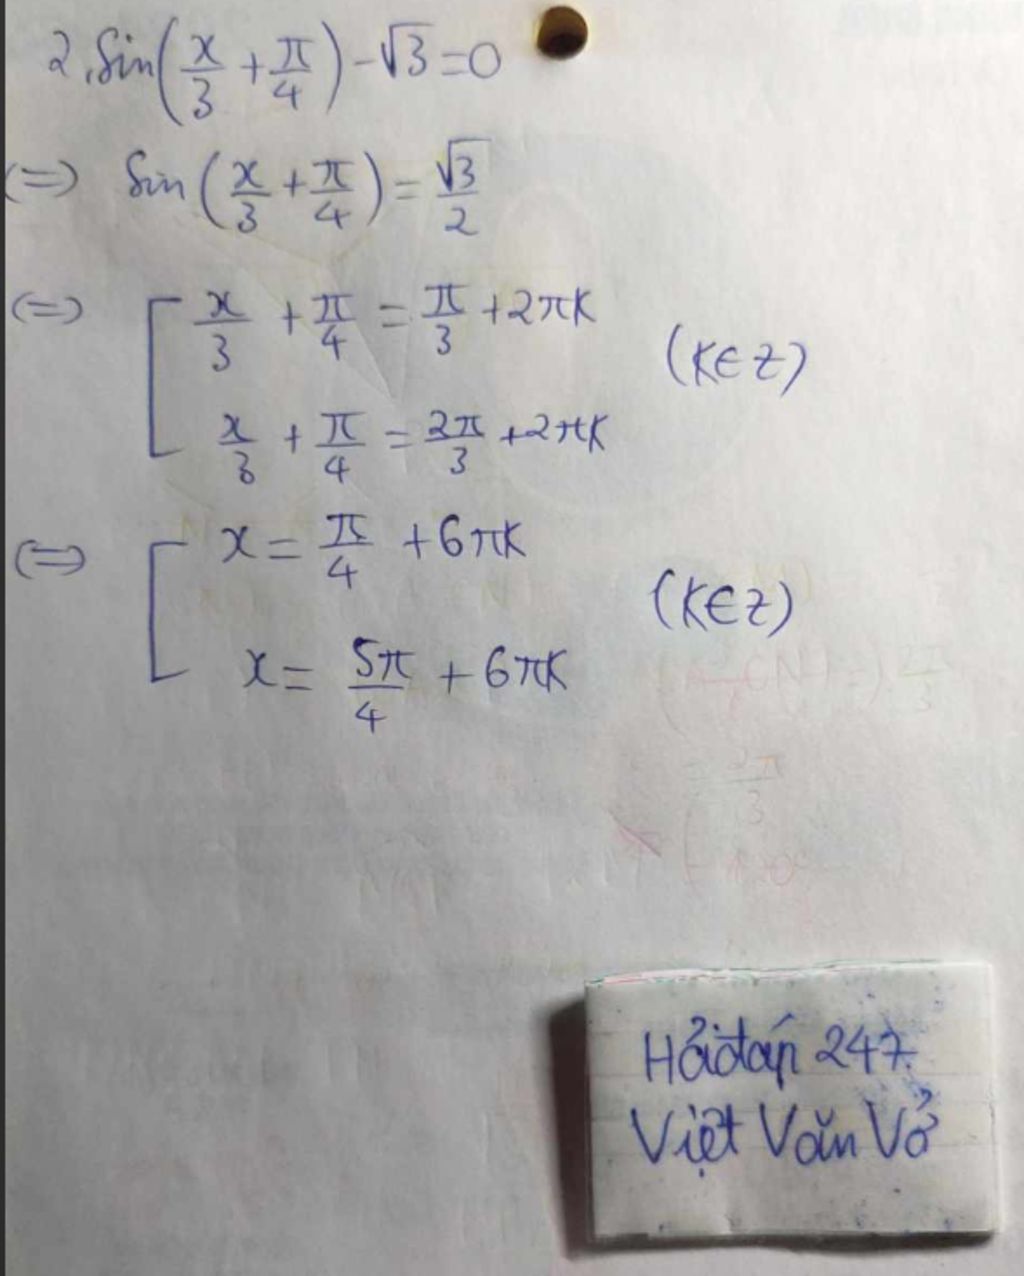 2.Sin(x/3 + π/4) - √3 = 0
(=) Sin(x/3 + π/4) = √3/2
(=) [ x/3 + π/4 = π/3 + 2πK
(K∈Z)
x/3 + π/4 = 2π/3 + 2πK
(=) [ x = π/4 + 6πK
(K∈Z)
x = 5π/4 + 6πK
Hỏiđáp 247.
Việt Văn Vở